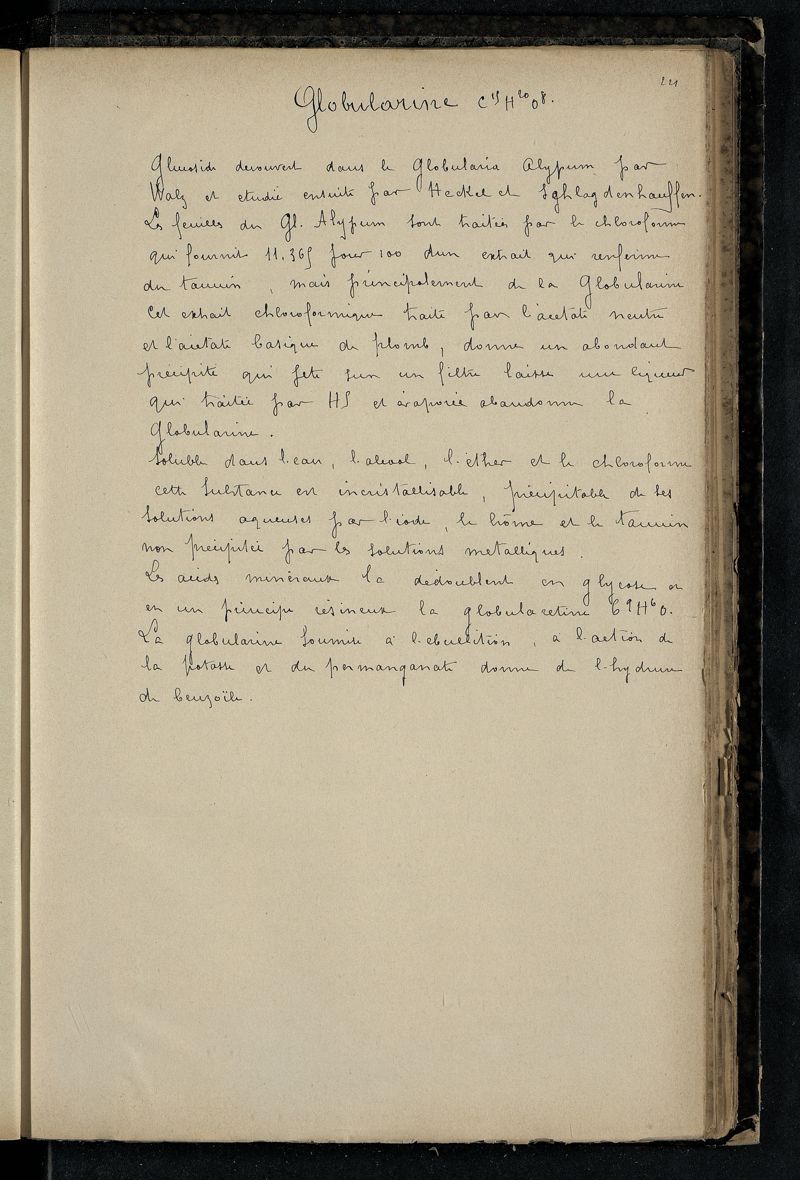 221
Globularine C¹⁵H²⁰O⁸.
Glucoside decouvert dans le Globularia Alypum par
Walz et etudié ensuite par Heckel et Sghlagdenhauffen.
Les feuilles du Gl. Alypum sont traitées par le chloroforme
qui fournit 11,365 pour 100 d'un extrait qui renferme
du tannin, mais principalement de la Globularine
Cet extrait chloroformique traité par l'acetate neutre
et l'acetate basique de plomb, donne un abondant
précipité qui jeté sur un filtre laisse une liqueur
qui traitée par HS et évaporée abandonne la
Globularine.
Soluble dans l'eau, l'alcool, l'éther et le chloroforme
cette substance est incristallisable, précipitable de ses
solutions aqueuses par l'iode, le brôme et le tannin
non précipitée par les solutions metalliques.
Les acides minéraux la dédoublent en glycose et
en un principe résineux la globularetine C⁹H⁶O.
La globularine soumise à l'ebullition, a l'action de
la potasse et du permanganate donne de l'hydrure
de benzoïle.